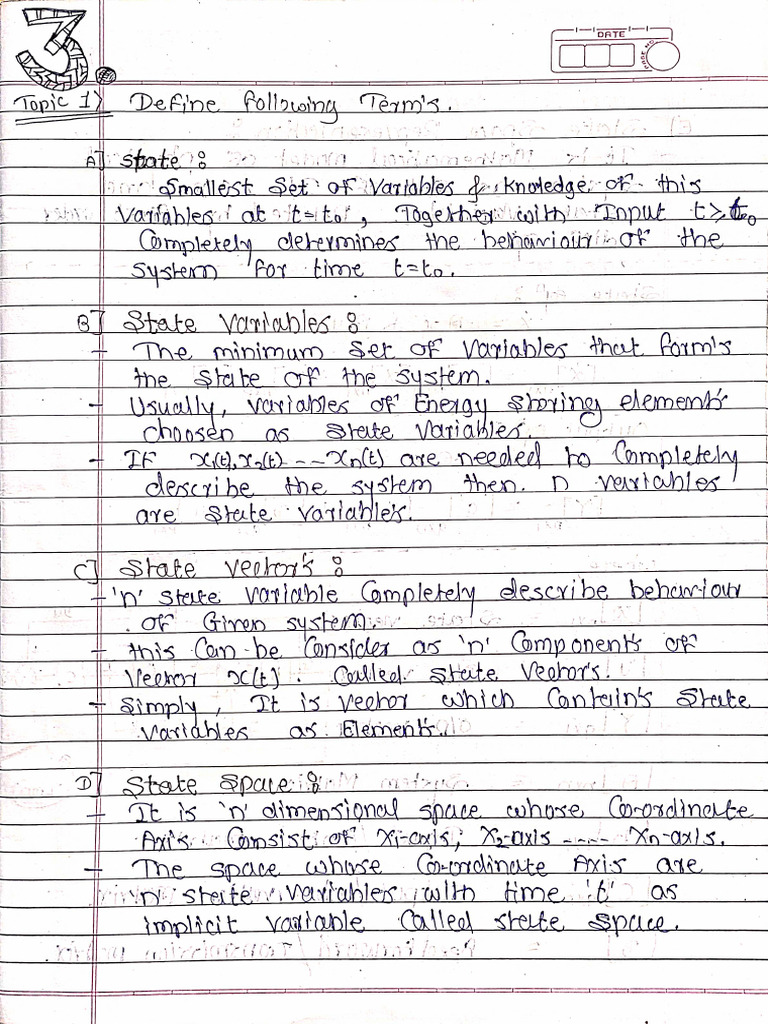 3.
DATE
PAGE NO
Topic 1> Define following Term's.
A] State :
Smallest set of variables & knowledge of this
variables at t=t₀, Together with Input t≥t₀
Completely determines the behaviour of the
system for time t=t₀.
B] State Variables :
- The minimum set of variables that form's
the state of the system.
- Usually, variables of Energy storing element's
choosen as state variables.
- If x₁(t), x₂(t) --- xₙ(t) are needed to Completely
describe the system then. n variables
are state variable's.
C] State vector's :
- 'n' state variable Completely describe behaviour
of Given system.
- this Can be Consider as 'n' Component's of
vector x(t). Called State Vector's.
- Simply, It is vector which Contain's State
variables as Element's.
D] State Space :
- It is 'n' dimensional space whose Co-ordinate
Axi's Consist of x₁-axis, x₂-axis ----- xₙ-axis.
- The space whose Co-ordinate Axis are
'n' state variables with time 't' as
implicit variable Called state space.